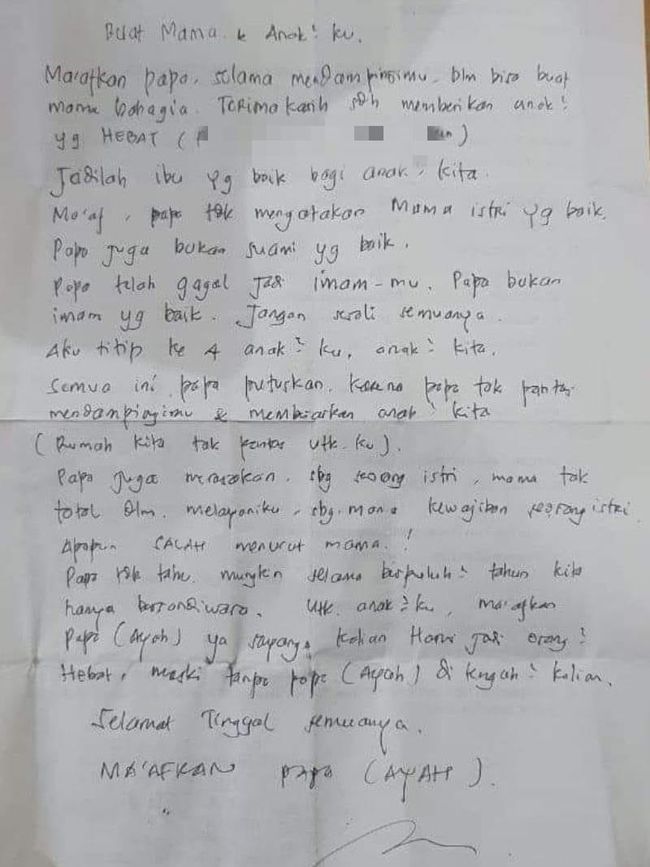 Buat Mama & Anak² ku.
Ma'afkan papa, selama mendampingimu, blm bisa buat
mama bahagia. Terima kasih sdh memberikan anak²
yg HEBAT (
Jadilah ibu yg baik bagi anak² kita.
Ma'af, papa tdk mengatakan Mama istri yg baik.
Papa juga bukan suami yg baik.
Papa telah gagal jadi imam-mu. Papa bukan
imam yg baik. Jangan sesali semuanya.
Aku titip ke 4 anak² ku, anak² kita.
Semua ini papa putuskan. Karena papa tak pantas
mendampingimu & membiarkan anak² kita
(Rumah kita tak pantas utk. ku).
Papa juga merasakan, sbg seorang istri, mama tak
total dlm. melayaniku, sbg. mana kewajiban seorang istri
Apapun SALAH menurut mama.!
Papa tdk tahu. mungkin selama berpuluh² tahun kita
hanya bersandiwara. Utk. anak² ku, ma'afkan
Papa (Ayah) ya sayang. Kalian Harus jadi orang²
Hebat, meski tanpa papa (Ayah) di tengah² kalian.
Selamat Tinggal semuanya.
MA'AFKAN papa (AYAH).